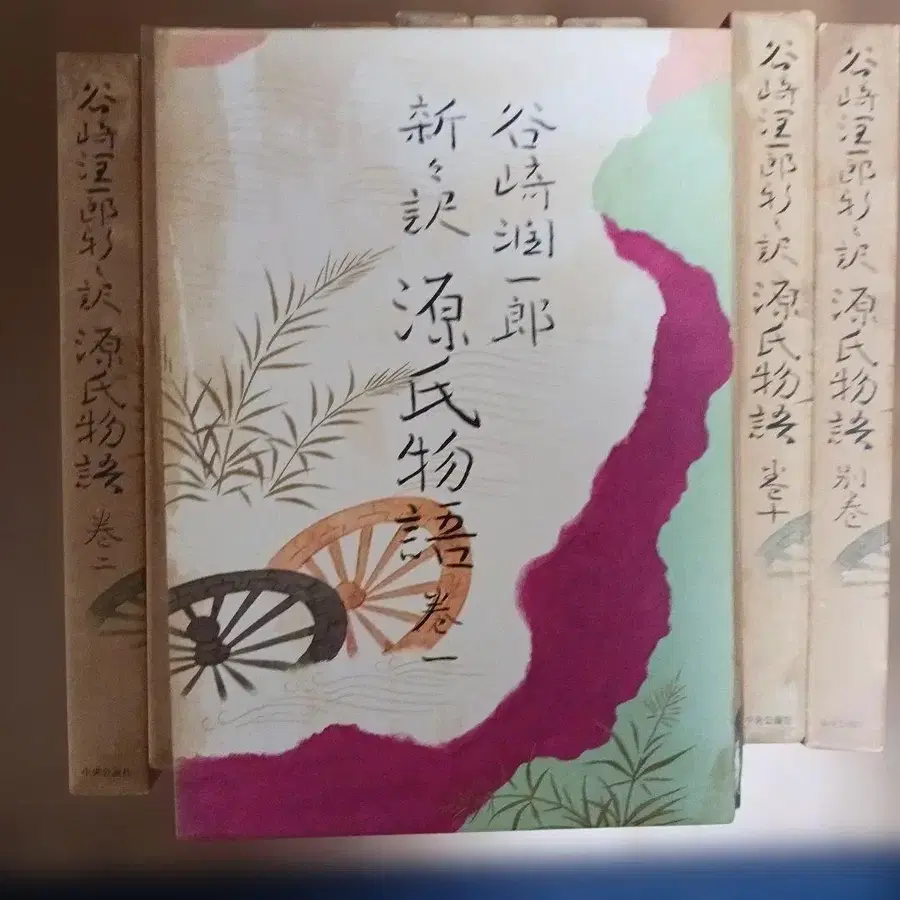 谷崎潤一郎新々訳 源氏物語 別巻
谷崎潤一郎新々訳 源氏物語 巻十
中央公論社
谷崎潤一郎
新々訳 源氏物語 巻一
谷崎潤一郎新々訳 源氏物語 巻二
中央公論社